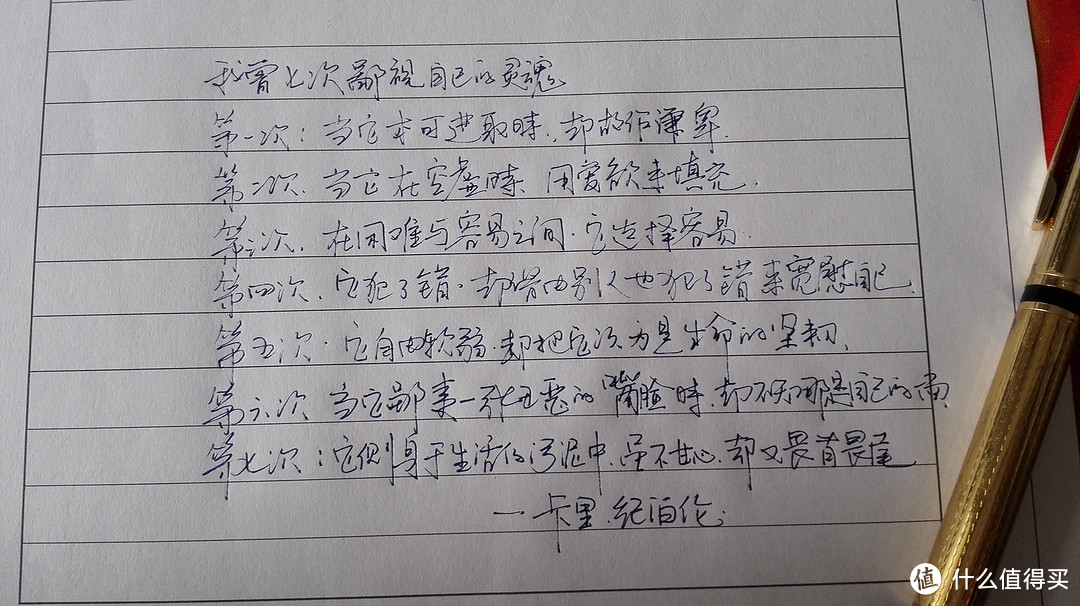 我曾七次鄙视自己的灵魂
第一次：当它本可进取时，却故作谦卑.
第二次，当它在空虚时，用爱欲来填充.
第三次，在困难与容易之间.它选择容易.
第四次，它犯了错.却借由别人也犯了错来宽慰自己.
第五次.它自由软弱.却把它次为是生命的坚韧、
第六次 当它鄙夷一张丑恶的嘴脸时.却不知那是自己的面
第七次：它侧身于生活的污泥中.虽不甘心.却又畏首畏尾
一卡里.纪伯伦
值 什么值得买